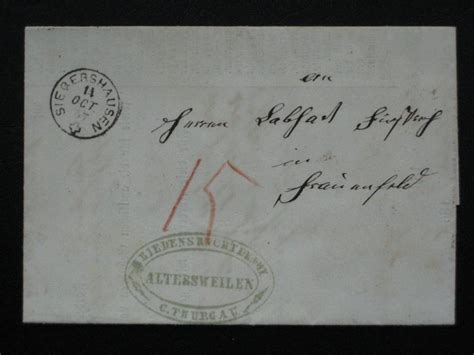 SIEGERSHAUSEN
11
OCT
an
Herren Labhart Fürsprech
in
Frauenfeld
15
FRIEDENSRICHTERAMT
ALTERSWEILEN
C. THURGAU